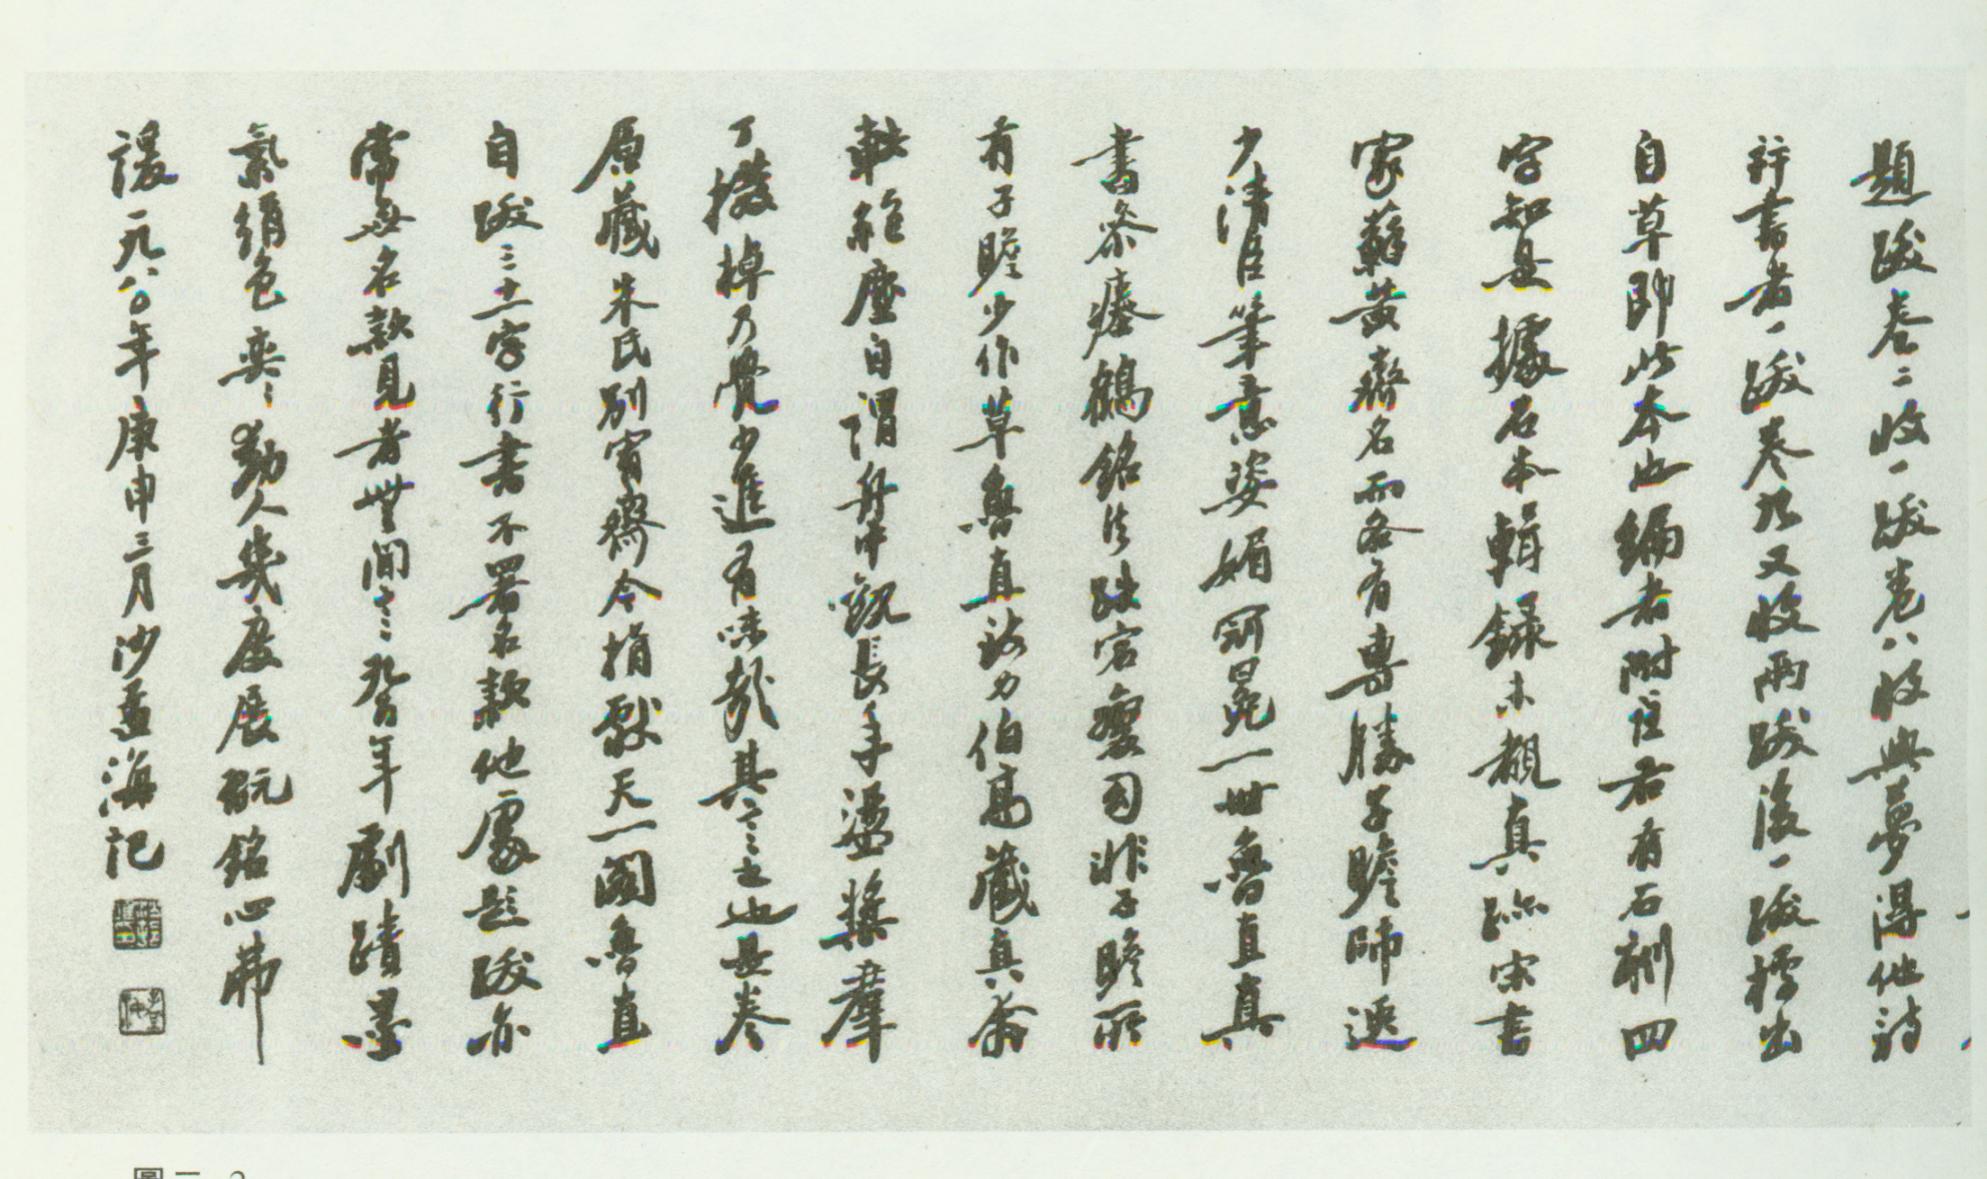 題跋卷二收一跋卷八收與夢得他詩
행書者一跋卷九又收兩跋後一跋標出
自草即此本也編者附注右有石刻四
字知是據石本輯錄未覩真跡宋書
家蘇黃齊名而各有專勝子瞻師
少清臣筆意姿媚冠冕一世魯直真
書參瘞鶴銘法跌宕夔司非子瞻所
有子瞻少作草魯直致力伯高藏真參
軼絕塵自謂舟中觀長年盪槳羣
丁撥棹乃覺少進有味哉其言之也是卷
原藏朱氏別宥齋今捐獻天一閣魯直
自跋三十二字行書不署名款他處題跋亦
常無名款見者世間之八百年劇蹟墨
氣絹色奕奕動人幾度展翫銘心弗
諼一九八〇年庚申三月沙孟海記
圖二-2